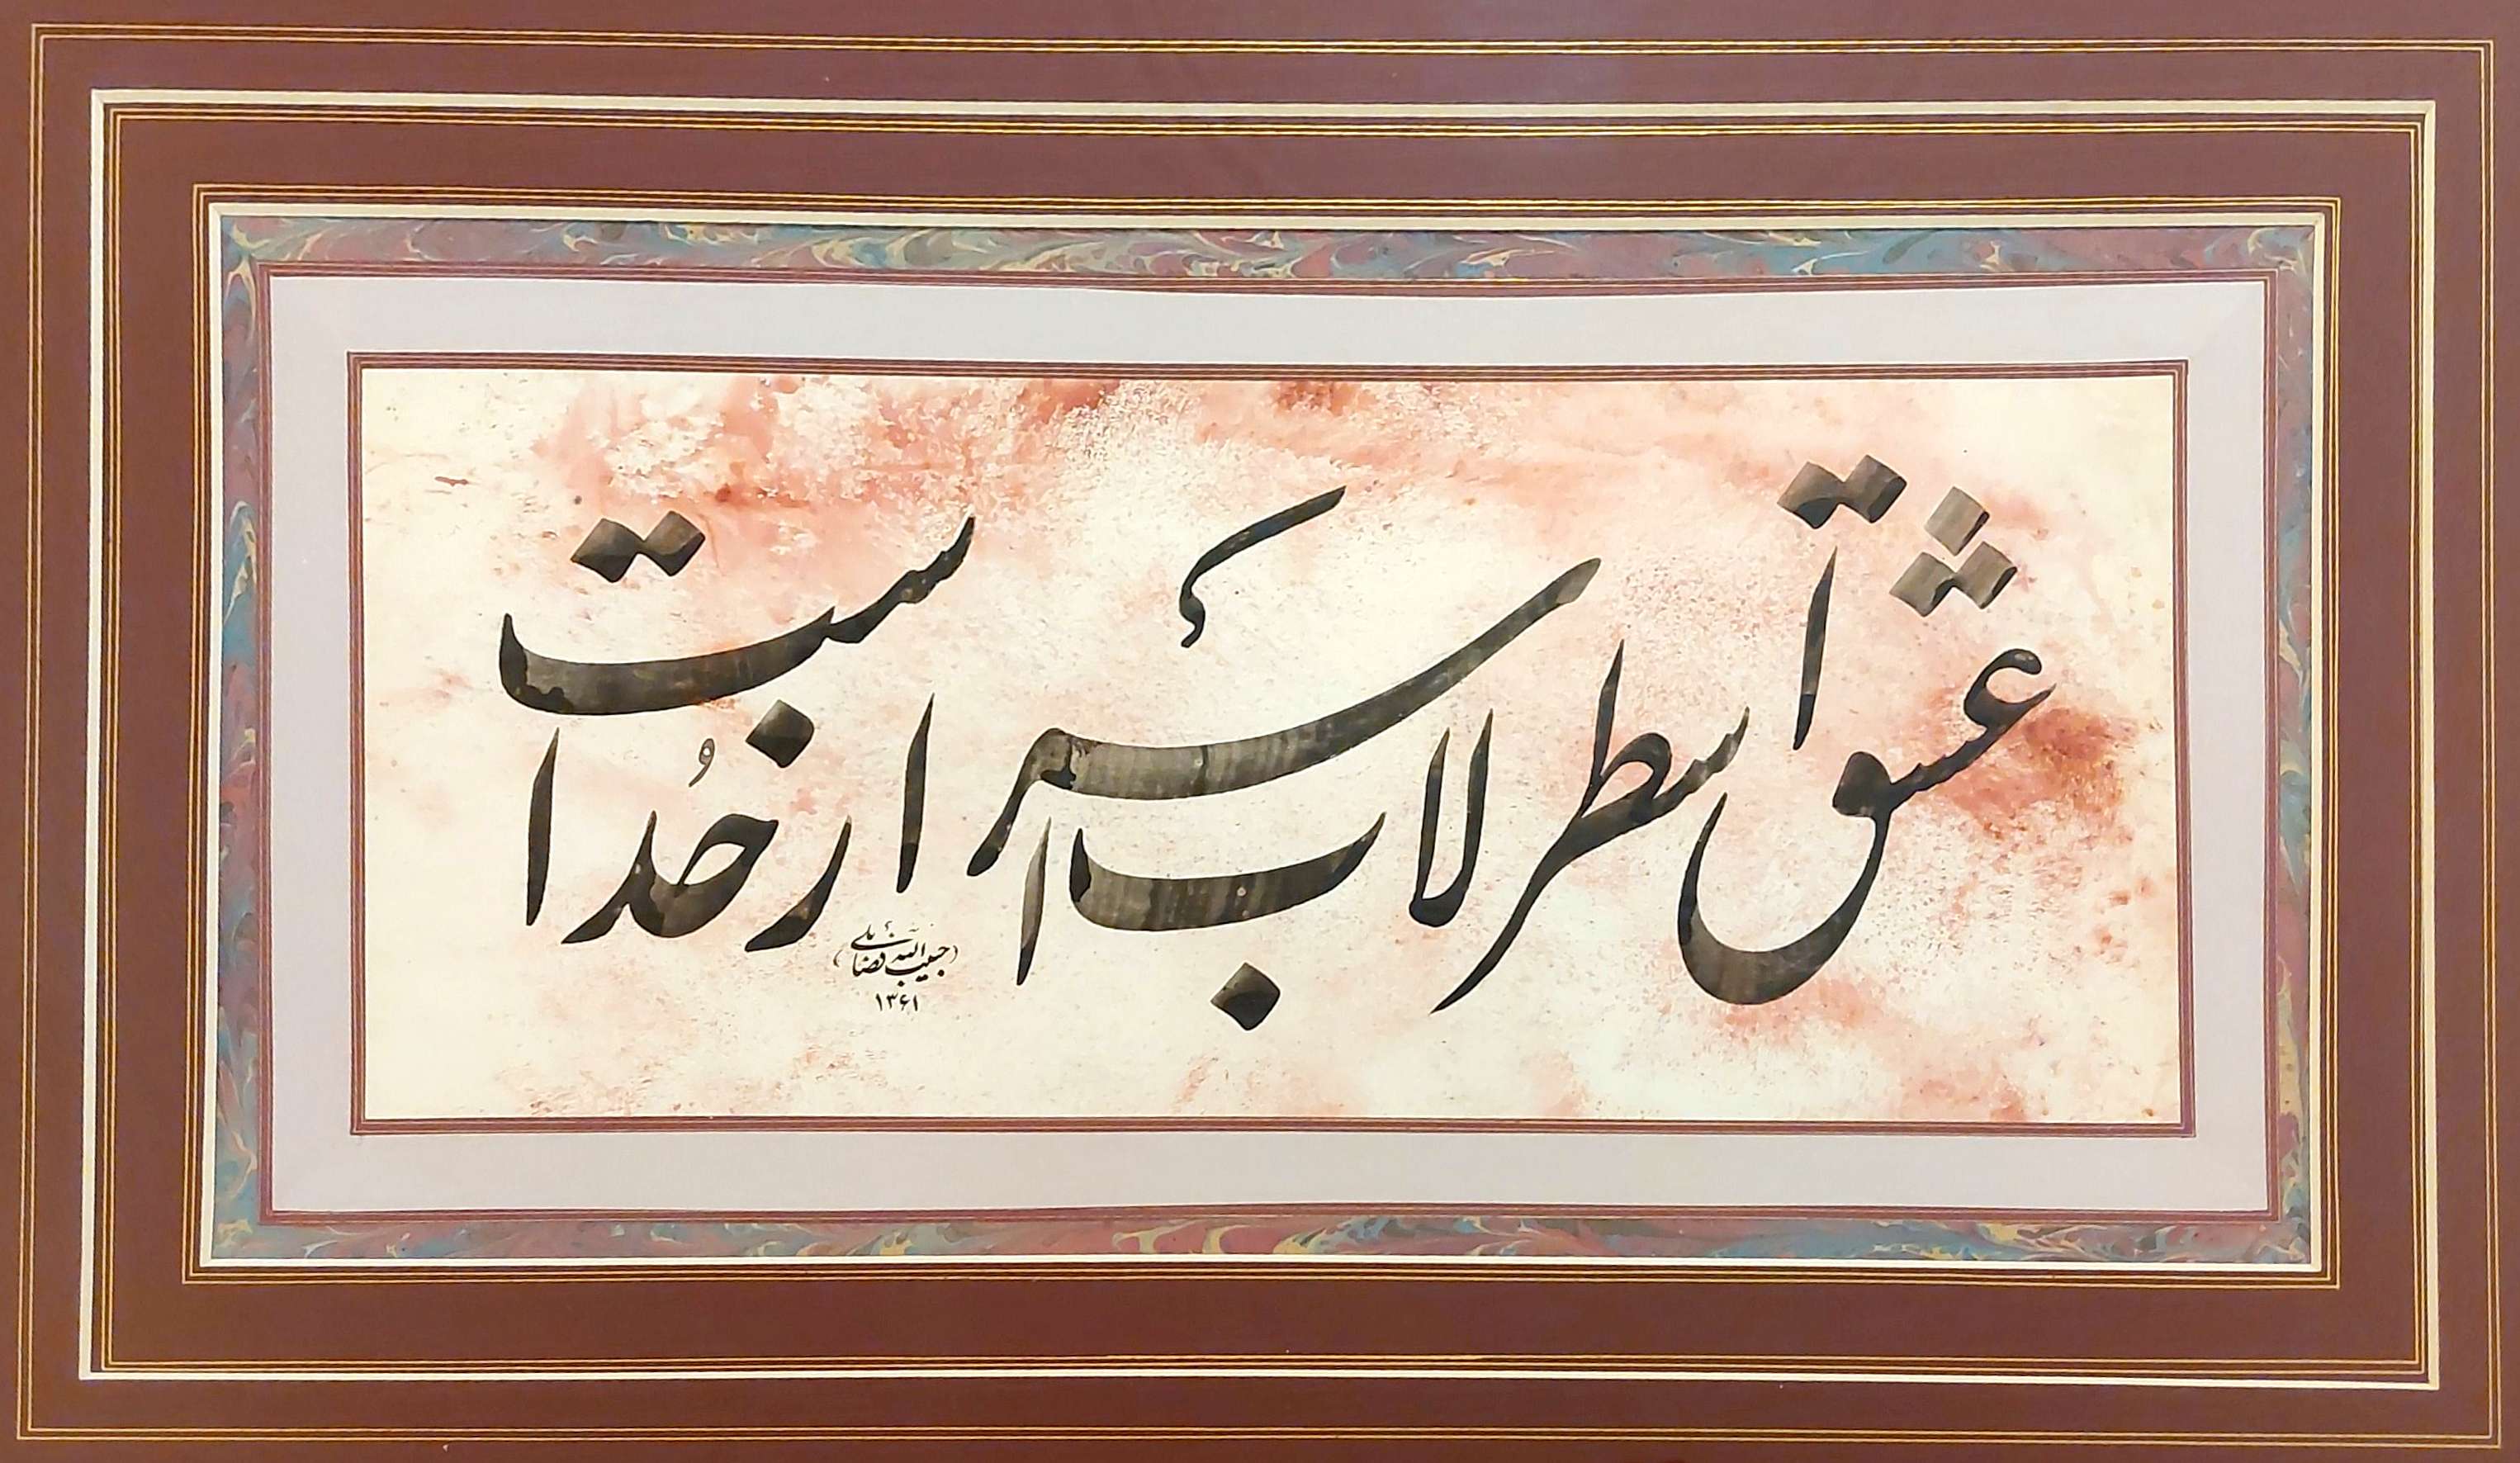 عشق اسطرلاب اسرار خداست
(حبیب الله فضائلی)
۱۳۶۱